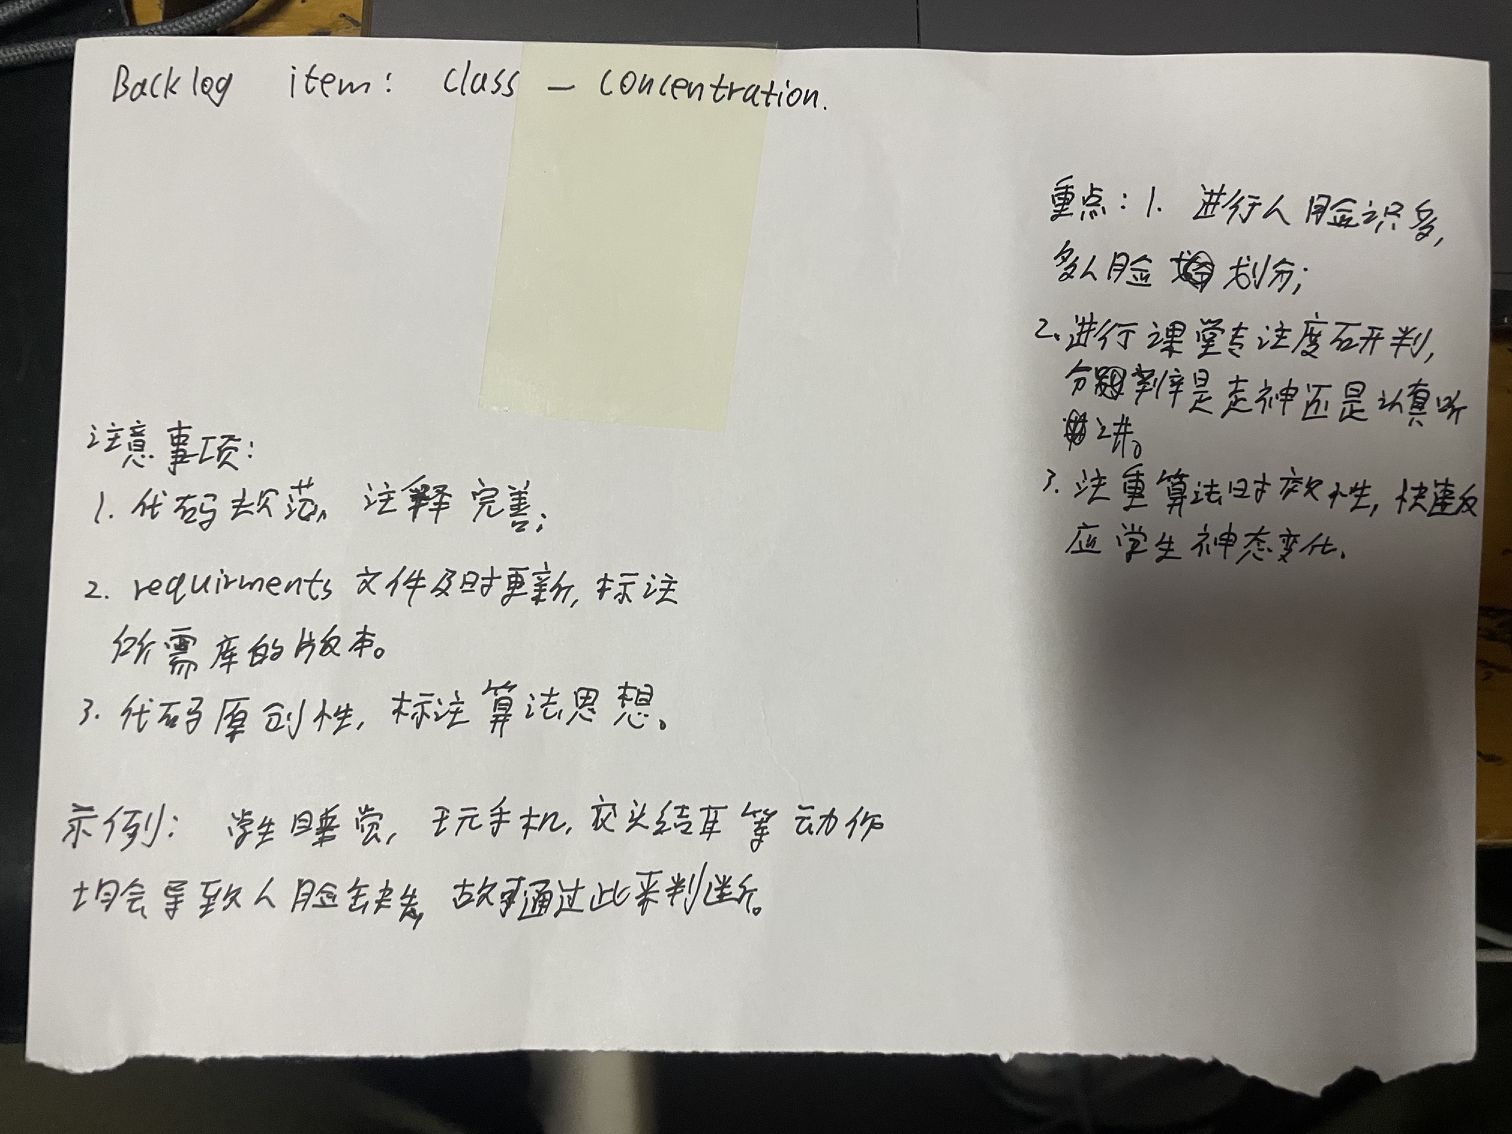 Backlog item: class — concentration.
重点：1. 进行人脸识多，
多人脸 划分；
2. 进行课堂专注度研判，
分 判率是走神还是认真听
讲。
3. 注重算法时效性，快速反
应学生神态变化。
注意事项：
1. 代码规范，注释完善；
2. requirments 文件及时更新，标注
所需库的版本。
3. 代码原创性，标注算法思想。
示例： 学生睡觉，玩手机，交头结耳等动作
均会导致人脸缺失，故 通过此来判断。